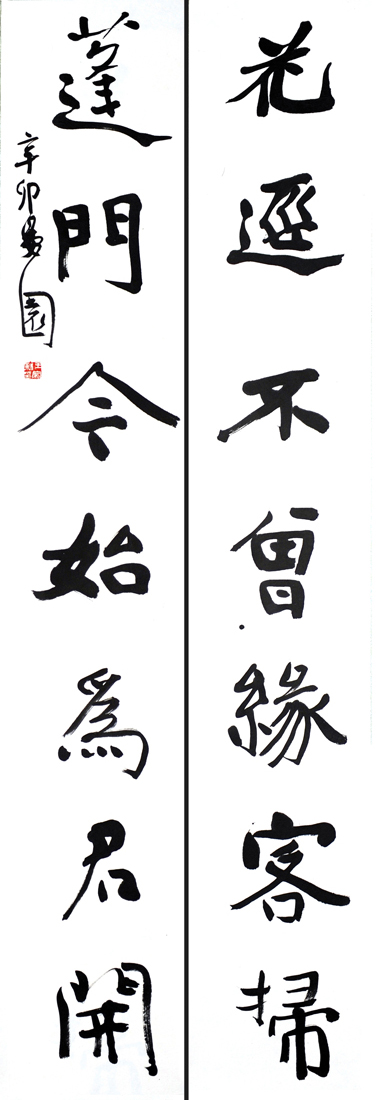 花逕不曾緣客掃
蓬門今始為君開
辛卯